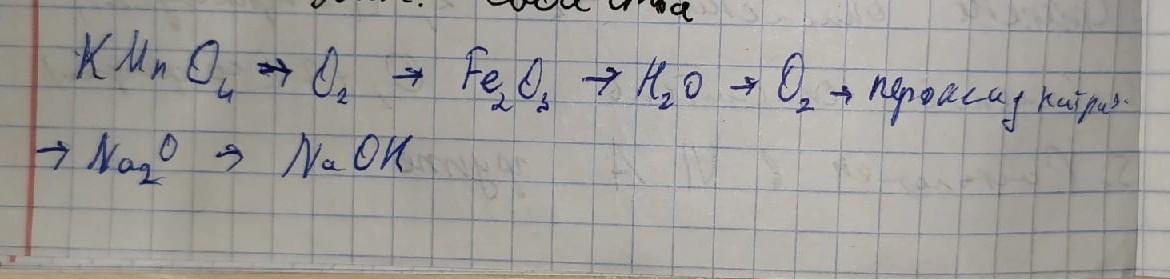 свойства
KMnO₄ → O₂ → Fe₂O₃ → H₂O → O₂ → пероксид натрия
→ Na₂O → NaOH